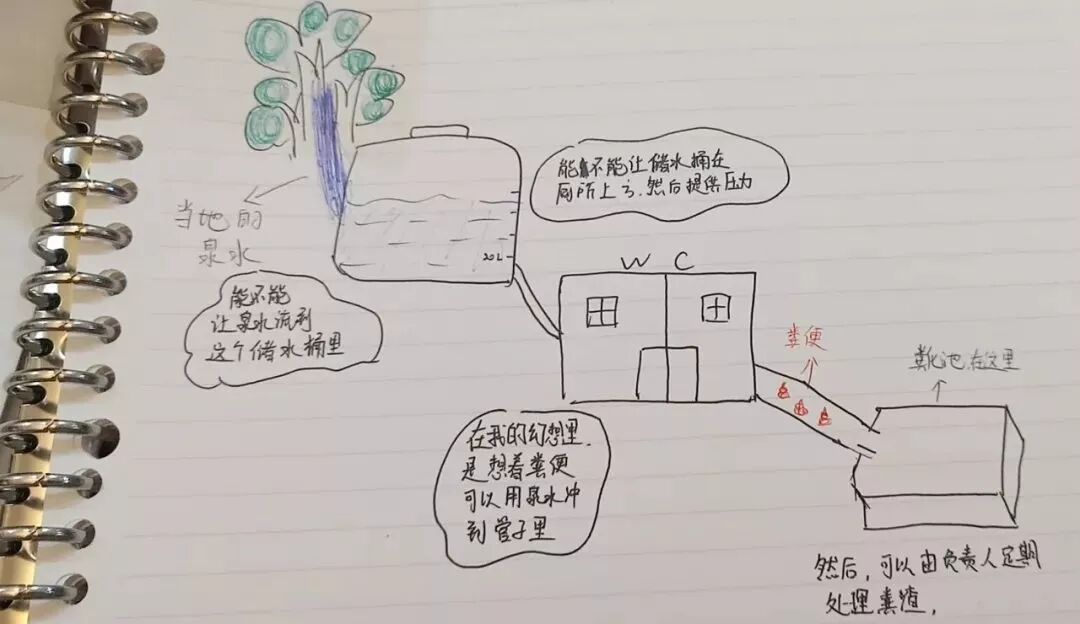 能不能让储水桶在
厕所上方.然后提供压力
当地的
泉水
20L
能不能
让泉水流到
这个储水桶里
W C
粪便
粪化池.在这里
在我的幻想里.
是想着粪便
可以用泉水冲
到管子里
然后,可以由负责人定期
处理粪渣,